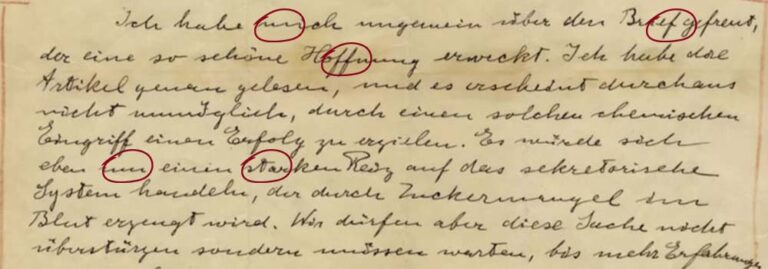 Ich habe mich ungemein über den Brief gefreut,
der eine so schöne Hoffnung erweckt. Ich habe die
Artikel genau gelesen, und es erscheint durchaus
nicht unmöglich, durch einen solchen chemischen
Eingriff einen Erfolg zu erzielen. Es würde sich
eben um einen starken Reiz auf das sekretorische
System handeln, der durch Zuckermangel im
Blut erzeugt wird. Wir dürfen aber diese Sache nicht
überstürzen sondern müssen warten, bis mehr Erfahrungen